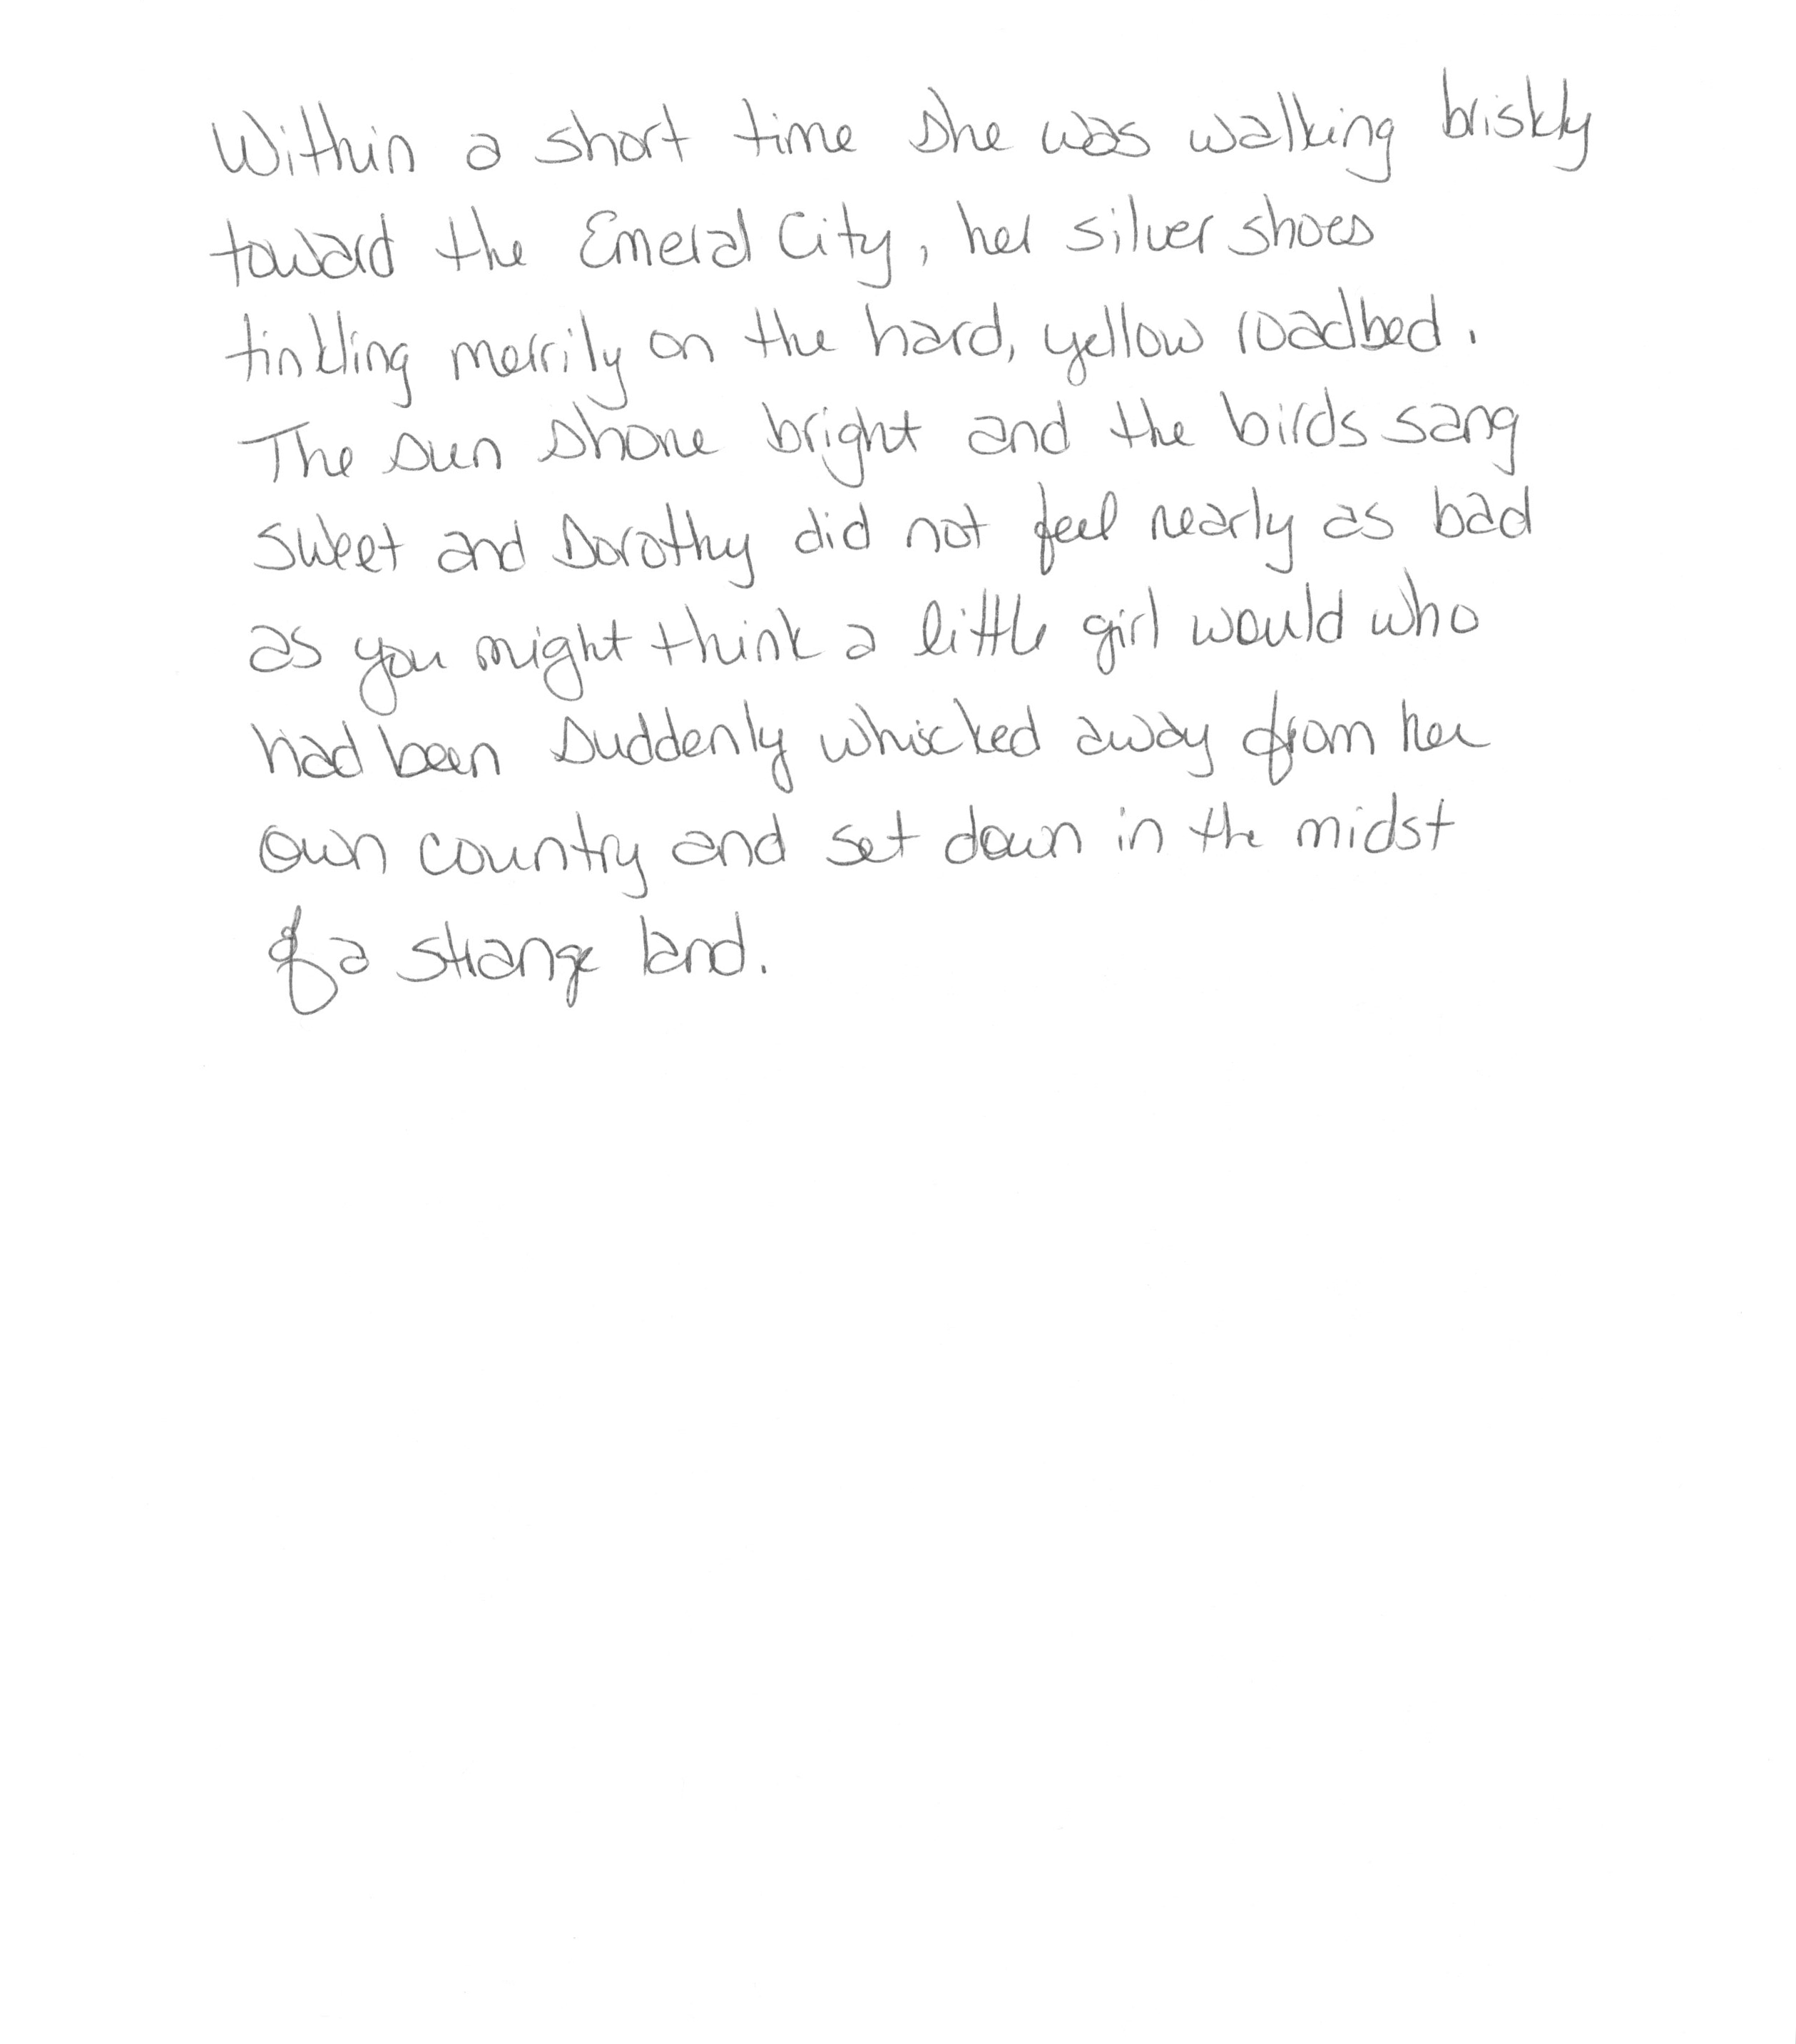 Within a short time she was walking briskly
toward the Emerald City, her silver shoes
tinkling merrily on the hard, yellow roadbed.
The sun shone bright and the birds sang
sweet and Dorothy did not feel nearly as bad
as you might think a little girl would who
had been suddenly whicked away from her
own country and set down in the midst
of a strange land.